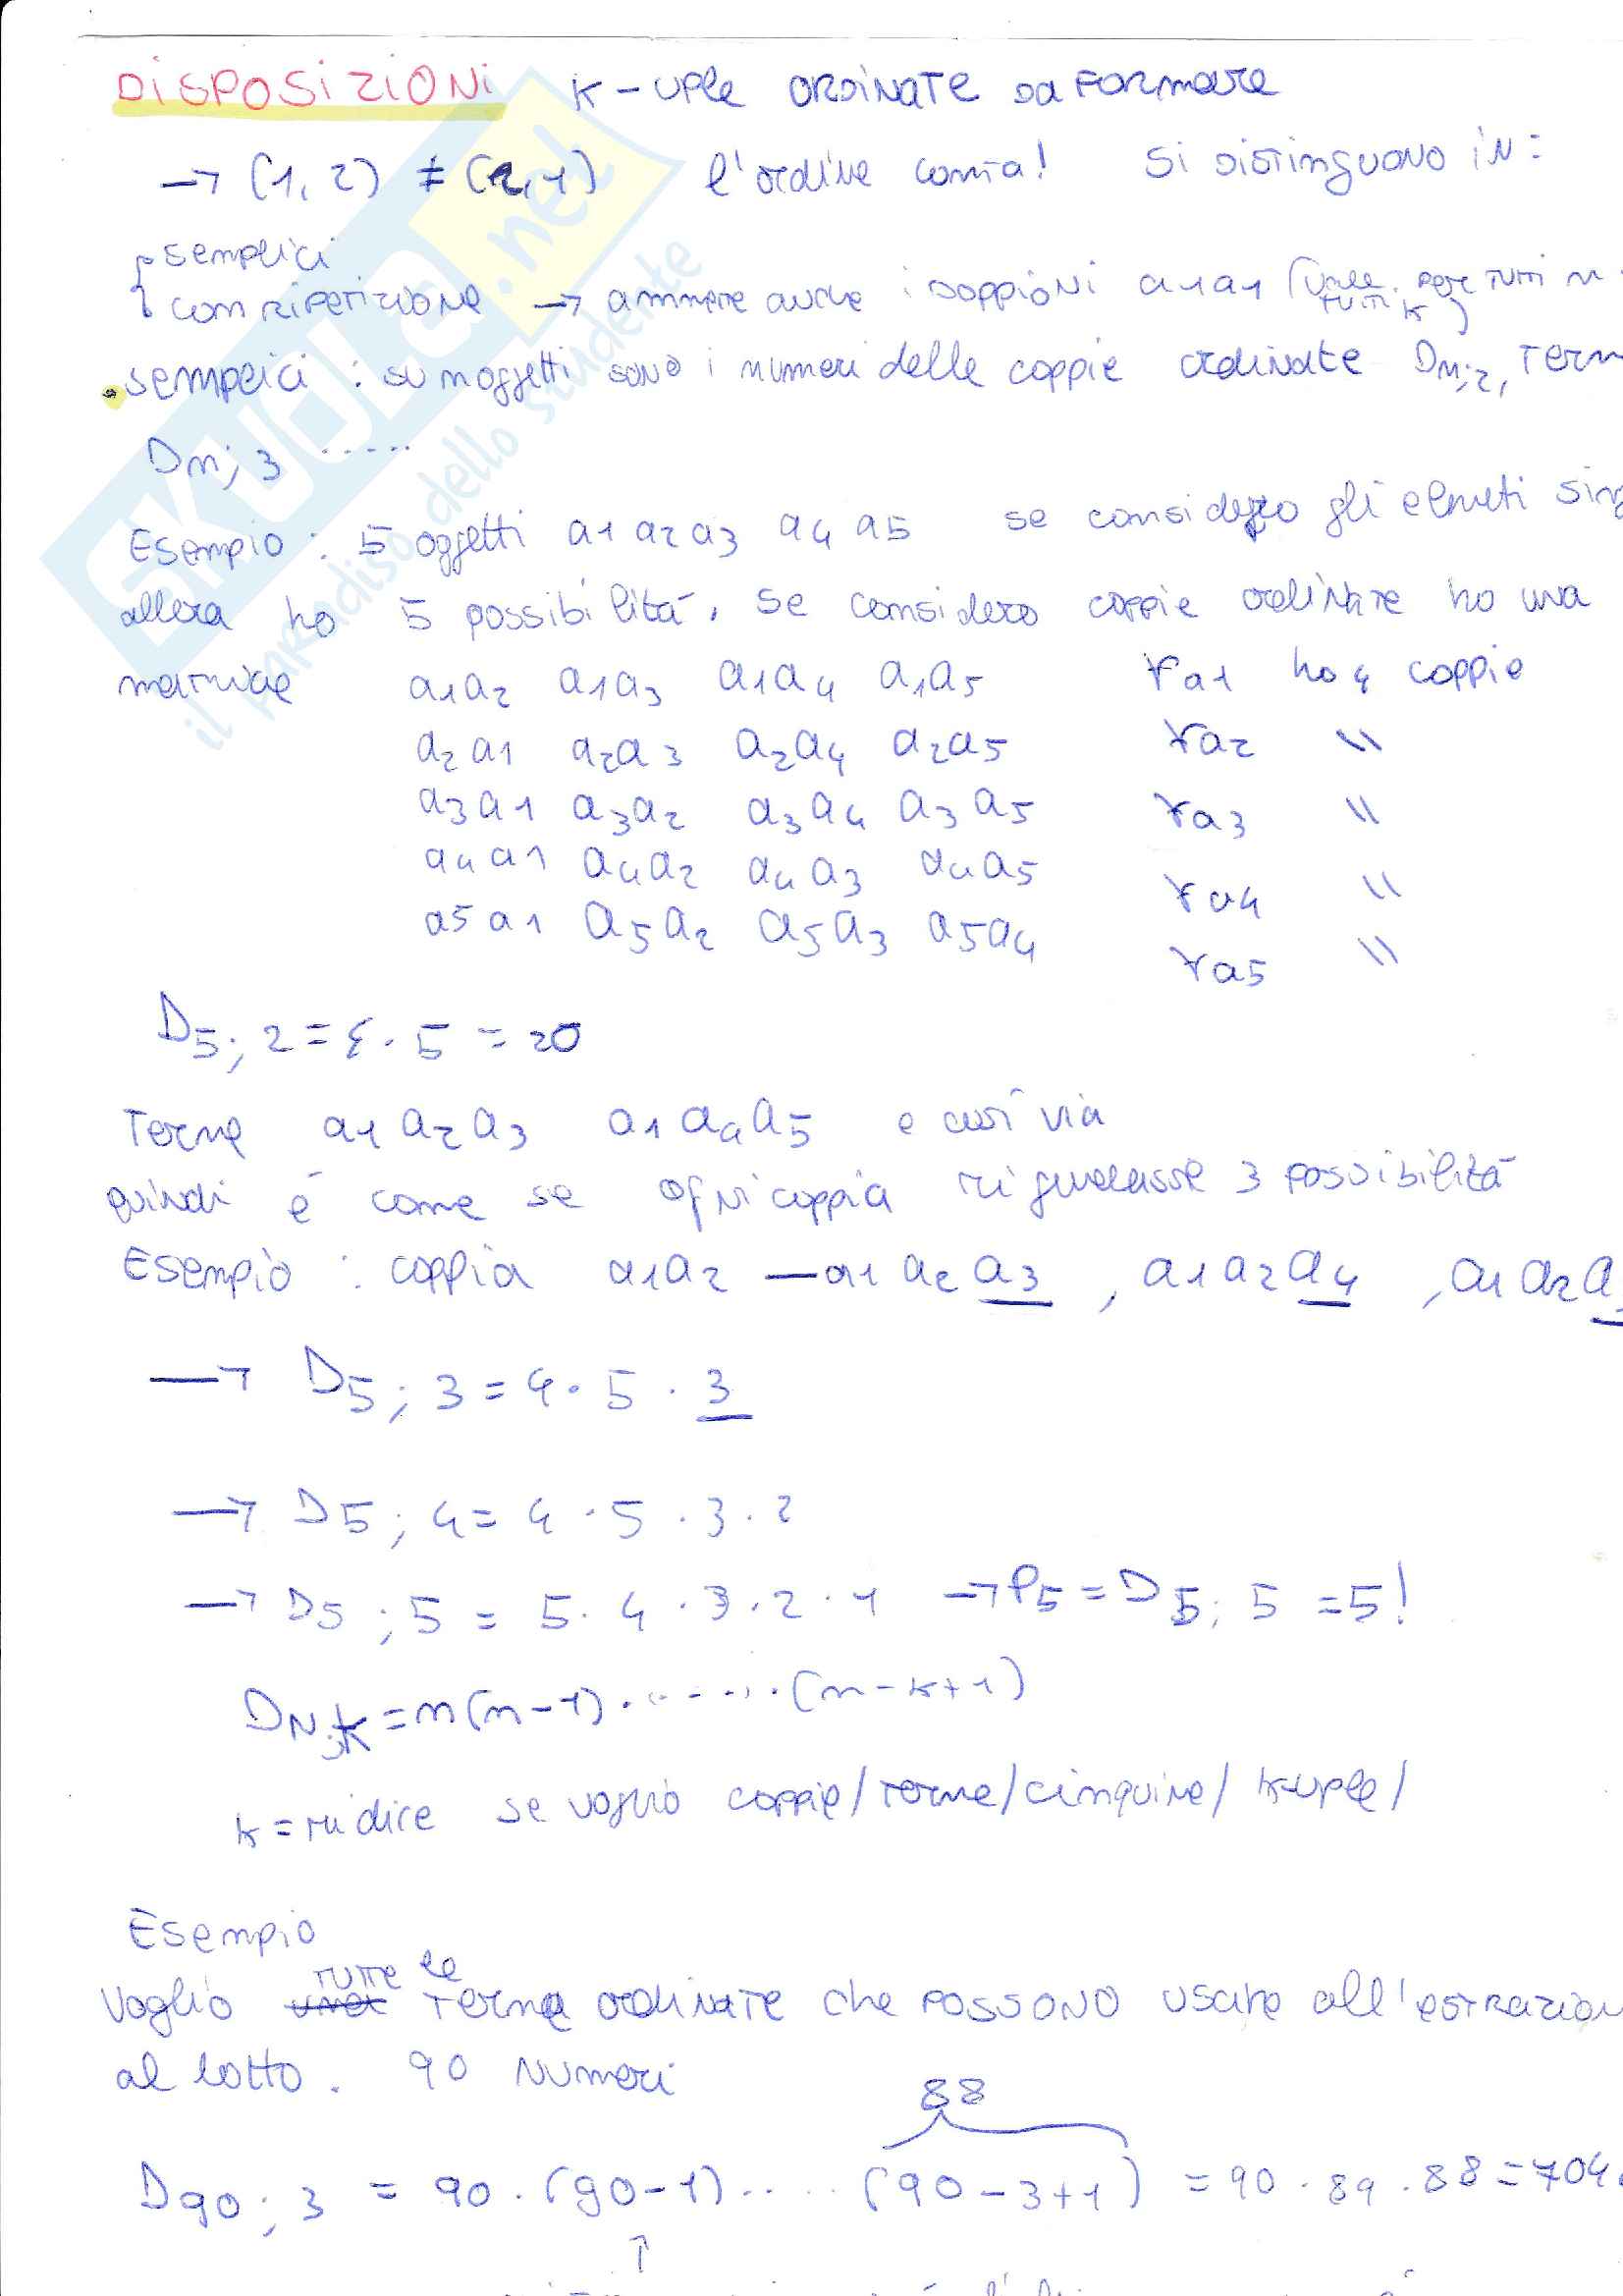 DISPOSIZIONI K-UPLE ORDINATE DA FORMARE
→ (1, 2) ≠ (2, 1) l'ordine conta! SI DISTINGUONO IN:
semplici
con ripetizione → ammette anche i doppioni a1a1 (vale per tutti n tutti k)
• semplici : su n oggetti sono i numeri delle coppie ordinate Dn;2, Tern
Dn; 3 .....
Esempio : 5 oggetti a1 a2 a3 a4 a5 se considero gli elmeti sing
allora ho 5 possibilità. Se considero coppie ordinate ho una
matrice a1a2 a1a3 a1a4 a1a5 ∀a1 ho 4 coppie
a2a1 a2a3 a2a4 a2a5 ∀a2 "
a3a1 a3a2 a3a4 a3a5 ∀a3 "
a4a1 a4a2 a4a3 a4a5 ∀a4 "
a5a1 a5a2 a5a3 a5a4 ∀a5 "
D5; 2 = 4 · 5 = 20
Terne a1 a2 a3 a1 a4 a5 e così via
quindi è come se ogni coppia riguardasse 3 possibilità
Esempio : coppia a1a2 — a1 a2 a3 , a1 a2 a4 , a1 a2 a
→ D5; 3 = 4 · 5 · 3
→ D5; 4 = 4 · 5 · 3 · 2
→ D5; 5 = 5 · 4 · 3 · 2 · 1 → P5 = D5; 5 = 5!
DN;K = n(n-1) · ...... · (n-k+1)
k = mi dice se voglio coppie/terne/cinquine/k-uple/
Esempio
Voglio tutte le terne ordinate che possono usare all'estrazion
al lotto. 90 numeri
88
D90; 3 = 90 · (90-1) ..... (90-3+1) = 90 · 89 · 88 = 704
↑
SKUOLA.net
il paradiso dello studente